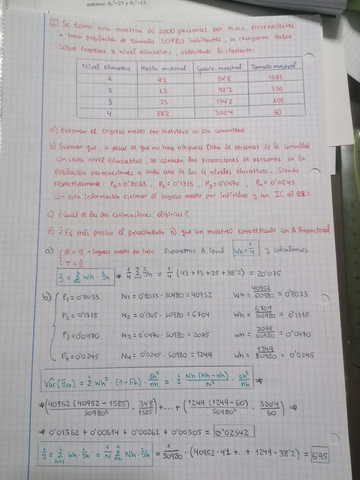 ② Se toma una muestra de 2000 personas por m.a.s. pertenecientes
a una población de tamaño 50980 habitantes, se recogieron datos
sobre ingresos y nivel educativo, obteniendo lo siguiente:
Nivel educativo Media muestral Cuasiv. muestral Tamaño muestral
1 4'1 34'8 1585
2 13 92'2 250
3 25 174'2 105
4 38'2 320'4 60
a) Estimar el ingreso medio por individuo en esa comunidad
b) Suponer que, a pesar de que no hay ninguna lista de personas de la comunidad
con cada nivel educativo, se conocen las proporciones de personas de la
población pertenecientes a cada uno de los 4 niveles educativos. Siendo
respectivamente: P₁=0'8033, P₂=0'1315, P₃=0'0470, P₄=0'0245
Con esta información estimar el ingreso medio por individuo y un IC al 95%
c) ¿Cuál de las dos estimaciones eligirías?
d) ¿Es más preciso el procedimiento b) que con muestreo estratificado con A. Proporcional
a) = Ingreso medio por indiv. Suponemos A. Igual Wh = 1/4 y calculamos
= 1/4 (4'1+13+25+38'2) = 20'075
b) P₁=0'8033 N₁=0'8033·50980=40952 Wh= 40952/50980 = 0'8033
P₂=0'1315 N₂=0'1315·50980=6704 Wh= 6704/50980 = 0'1315
P₃=0'0470 N₃=0'0470·50980=2075 Wh= 2075/50980 = 0'0470
P₄=0'0245 N₄=0'0245·50980=1249 Wh= 1249/50980 = 0'0245
(40952(40952-1585)/50980² · 34'8/1585) + ... + (1249(1249-60)/50980² · 320'4/60) ⇒
⇒ 0'01362 + 0'00614 + 0'00261 + 0'00305 = 0'02542
= 1/50980 · (40952·4'1 + ... + 1249·38'2) = 6'95